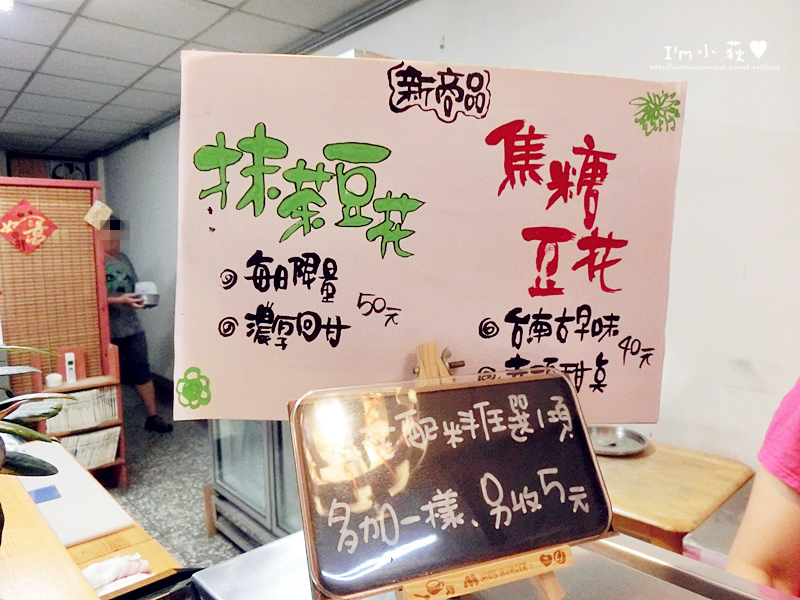 I'm 小荻♥
新商品
抹茶豆花
每日限量
濃厚回甘
50元
焦糖
豆花
台南古早味
40元
甜桌
配料任選1項
多加一樣、另收5元
MOS BURGER